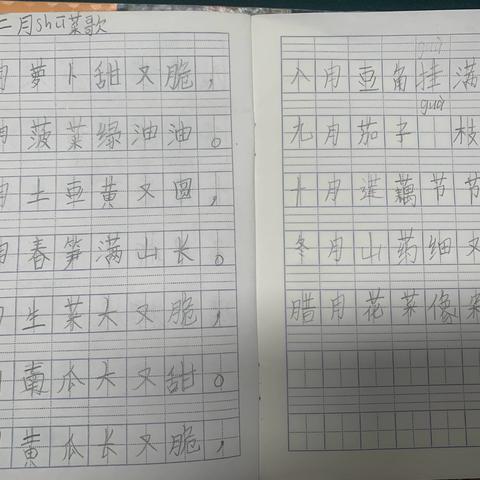 二月shū菜歌
月萝卜甜又脆，
月菠菜绿油油。
月土豆黄又圆，
月春笋满山长。
月生菜大又脆，
月南瓜大又甜。
月黄瓜长又脆，
八月豆角挂满
guà
九月茄子 枝
十月莲藕节节
冬月山药细又
腊月花菜像